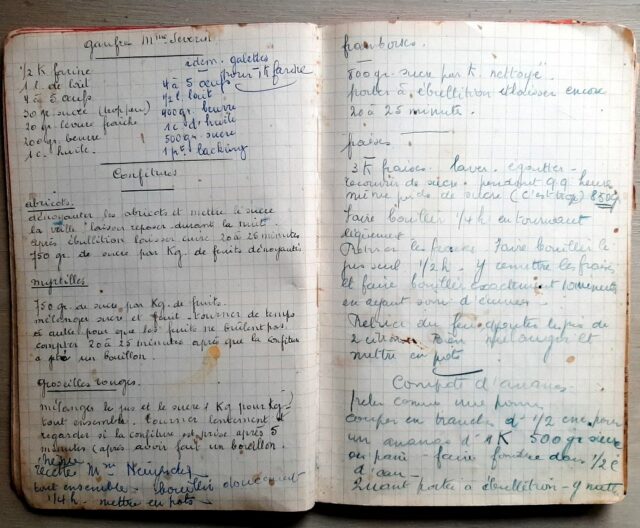 gaufre Mme Severin
1/2 K farine
1 l. de lait
4 à 5 œufs
30 gr. sucre (trop peu)
20 gr. levure fraîche
200 gr. beurre
1 c. huile.
idem. galettes
pour 1 K farine
4 à 5 œufs
1/2 l. lait
400 gr. beurre
1 c. d'huile
500 gr. sucre
1 pt. backing
Confitures
abricots.
dénoyauter les abricots et mettre le sucre
la veille. laisser reposer durant la nuit.
après ébullition laisser cuire 20 à 25 minutes
750 gr. de sucre par Kg. de fruits dénoyautés
myrtilles
750 gr. de sucre par Kg. de fruits.
mélanger sucre et fruit. tourner de temps
à autre pour que les fruits ne brûlent pas.
compter 20 à 25 minutes après que la confiture
a pris un bouillon.
Groseilles rouges.
mélanger le jus et le sucre (Kg pour Kg)
tout ensemble. tourner lentement et
regarder si la confiture est prise après 5
minutes (après avoir fait un bouillon.
recette Mme
tout ensemble. bouillir doucement
1/4 h. mettre en pots
framboises.
800 gr. sucre par K. nettoyé
porter à ébullition et laisser encore
20 à 25 minutes.
fraises.
3 K fraises. laver. égoutter.
recouvrir de sucre pendant 24 heures
même poids de sucre (c'est trop) 850 gr
Faire bouillir 1/4 h en tournant
légèrement
Retirer les fraises. Faire bouillir le
jus seul 1/2 h. y remettre les fraises
et faire bouillir exactement minutes
en ayant soin d'écumer.
Retirer du feu ajouter le jus de
2 citrons. Bien mélanger et
mettre en pots
Compote d'ananas.
Peler comme une pomme
couper en tranches d' 1/2 cm. pour
un ananas d' 1 K 500 gr sucre
en pain - faire fondre dans 1/2 l
d'eau -
Quant porté à ébullition - y mettre